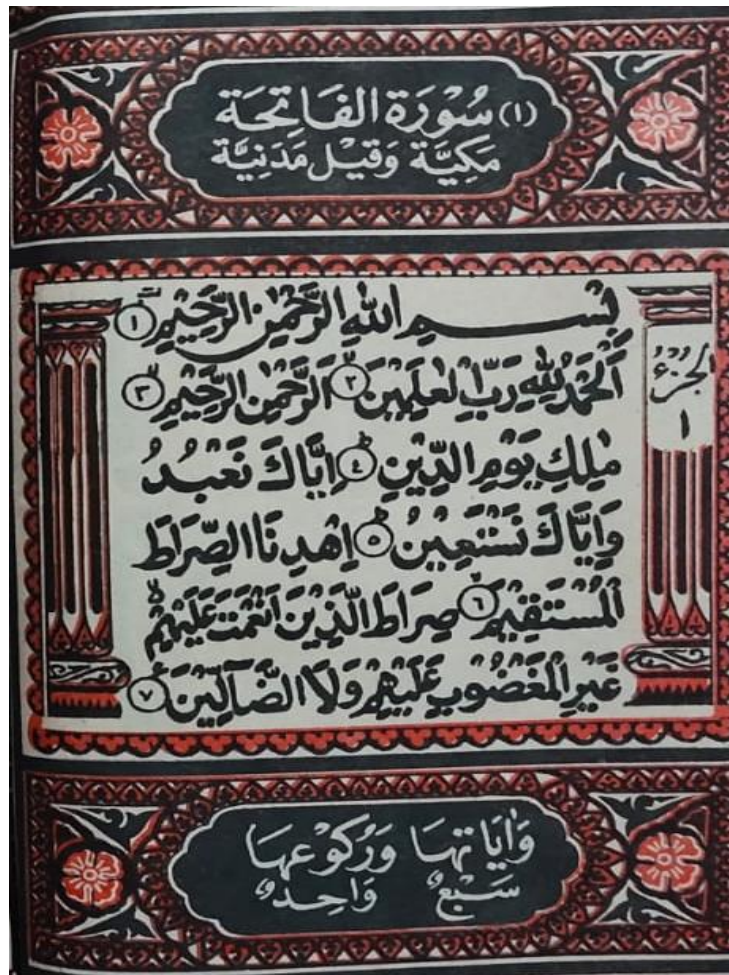 (١) سُوْرَةُ الفَاتِحَة
مَكِّيَّة وَقِيْل مَدَنِيَّة
بِسْمِ اللّٰهِ الرَّحْمٰنِ الرَّحِيْمِ ١
اَلْحَمْدُ لِلّٰهِ رَبِّ الْعٰلَمِيْنَ ٢ اَلرَّحْمٰنِ الرَّحِيْمِ ٣
مٰلِكِ يَوْمِ الدِّيْنِ ٤ اِيَّاكَ نَعْبُدُ
وَاِيَّاكَ نَسْتَعِيْنُ ٥ اِهْدِنَا الصِّرَاطَ
الْمُسْتَقِيْمَ ٦ صِرَاطَ الَّذِيْنَ اَنْعَمْتَ عَلَيْهِمْ
غَيْرِ الْمَغْضُوْبِ عَلَيْهِمْ وَلَا الضَّآلِّيْنَ ٧
الجُزْءُ
١
وَاٰيَاتهَا وَرُكُوْعهَا
سَبْعٌ وَاحِدٌ